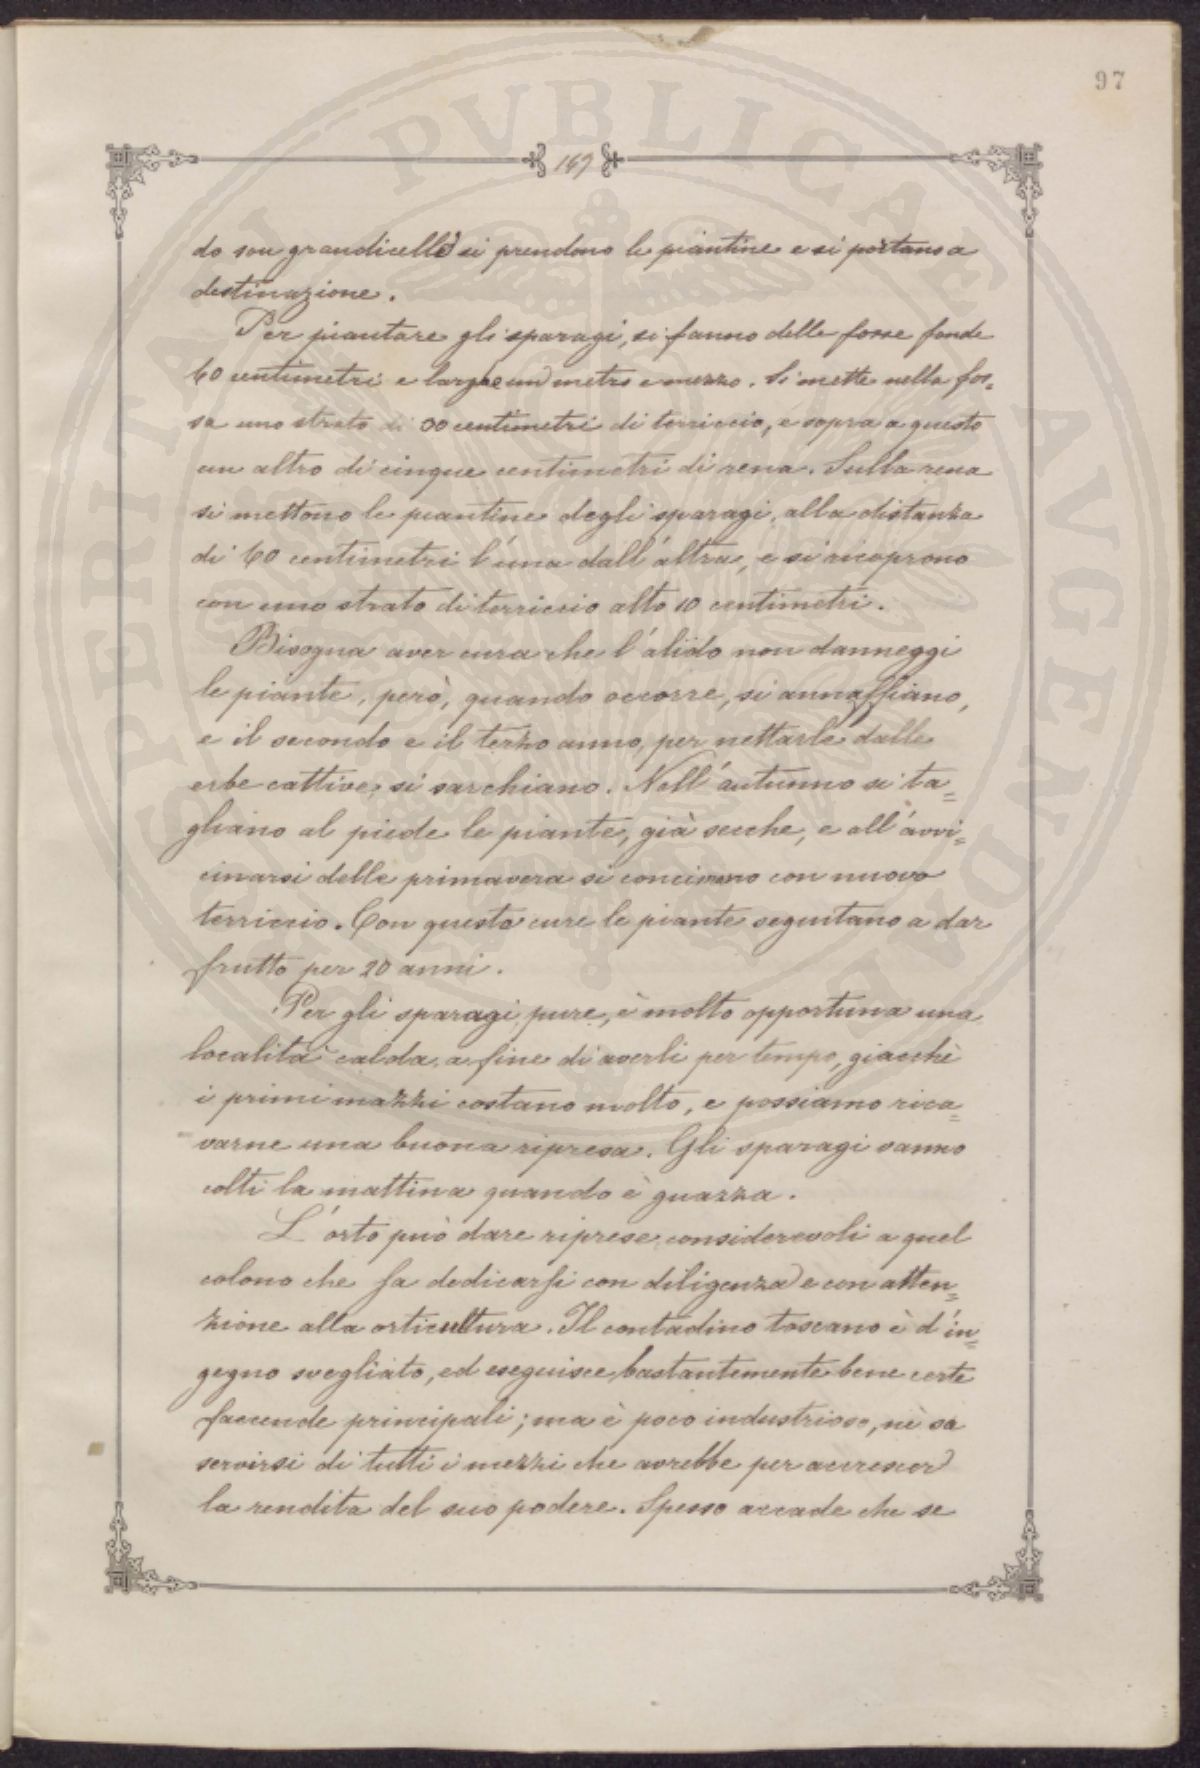 97
169
do son grandicelle si prendono le piantine e si portano a
destinazione.
Per piantare gli sparagi, si fanno delle fosse fonde
60 centimetri e larghe un metro e mezzo. Si mette nella fos=
sa uno strato di 30 centimetri di terriccio, e sopra a questo
un altro di cinque centimetri di rena. Sulla rena
si mettono le piantine degli sparagi, alla distanza
di 60 centimetri l'una dall'altra, e si ricoprono
con uno strato di terriccio alto 10 centimetri.
Bisogna aver cura che l'alido non danneggi
le piante, però, quando occorre, si annaffiano,
e il secondo e il terzo anno, per nettarle dalle
erbe cattive, si sarchiano. Nell'autunno si ta=
gliano al piede le piante, già secche, e all'avvi=
cinarsi delle primavera si concimano con nuovo
terriccio. Con queste cure le piante seguitano a dar
frutto per 20 anni.
Per gli sparagi pure, è molto opportuna una
località calda, a fine di averli per tempo, giacchè
i primi mazzi costano molto, e possiamo rica=
varne una buona ripresa. Gli sparagi vanno
colti la mattina quando è guazza.
L'orto può dare riprese considerevoli a quel
colono che sa dedicarsi con diligenza e con atten=
zione alla orticultura. Il contadino toscano è d'in=
gegno svegliato, ed eseguisce bastantemente bene certe
faccende principali; ma è poco industrioso, nè sa
servirsi di tutti i mezzi che avrebbe per accrescer
la rendita del suo podere. Spesso accade che se
SPERITAL PVBLICAE AVGENDAE